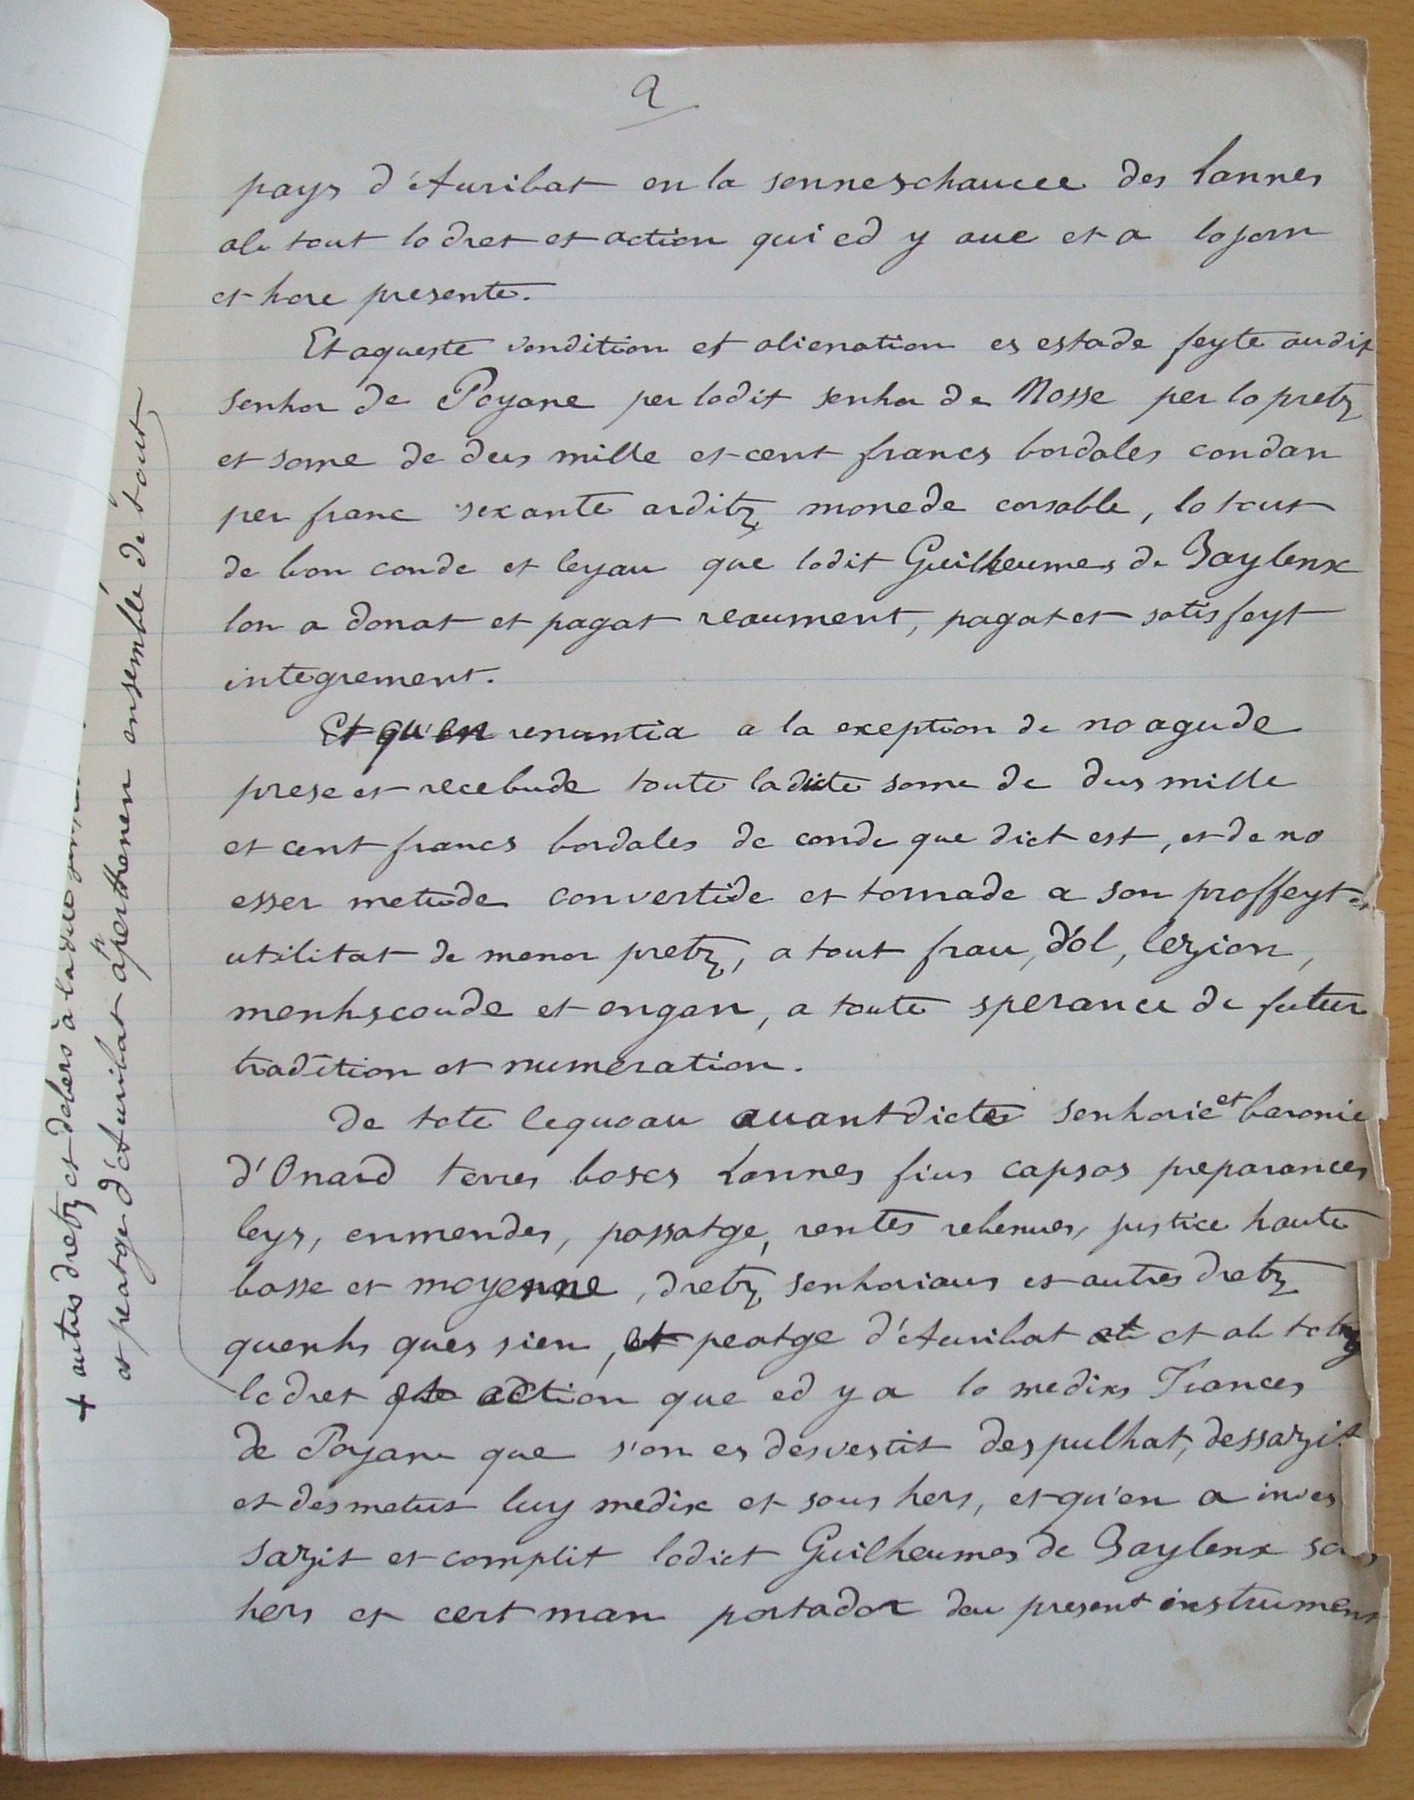 2
pays d'Auribat en la senneschaucee des Lannes
ab tout lo dret et action qui ed y aue et a lo jorn
et hore presente.
Et aqueste vendition et alienation es estade feyte audit
senhor de Poyane per lodit senhor de Nosse per lo pretz
et some de dus mille et cent francs bordales condan
per franc sexante arditz, monede corsable, lo tout
de bon conde et leyau que lodit Guilheumes de Baylenx
lon a donat et pagat reaument, pagat et satisfeyt
integrement.
Et qu'en renuntia a la exeption de no agude
prese et recebude toute ladite some de dus mille
et cent francs bordales de conde que dict est, et de no
esser metude convertide et tornade a son proffeyt et
utilitat de menor pretz, a tout frau, d'ol, lezion,
menhscoude et engan, a toute sperance de futur
tradition et numeration.
De tote lequoau auantdicte senhorie et baronie
d'Onard terres boscs Lannes fius capsos preparances
leys, enmendes, passatge, rentes rebenues, justice haute
basse et moyenne, dretz senhoriaus et autres dretz
quenhs ques sien, et peatge d'Auribat et ab totz
lo dret action que ed y a lo medixs Frances
de Poyane que s'en es desvestit despulhat, dessazit
et desmetut luy medix et sous hers, et qu'en a inves
sazit et complit lodict Guilheumes de Baylenx sous
hers et cert man portador deu present instrument
+ autres dretz et debers à la dite
et peatge d'Auribat aperthenen ensemble de tout